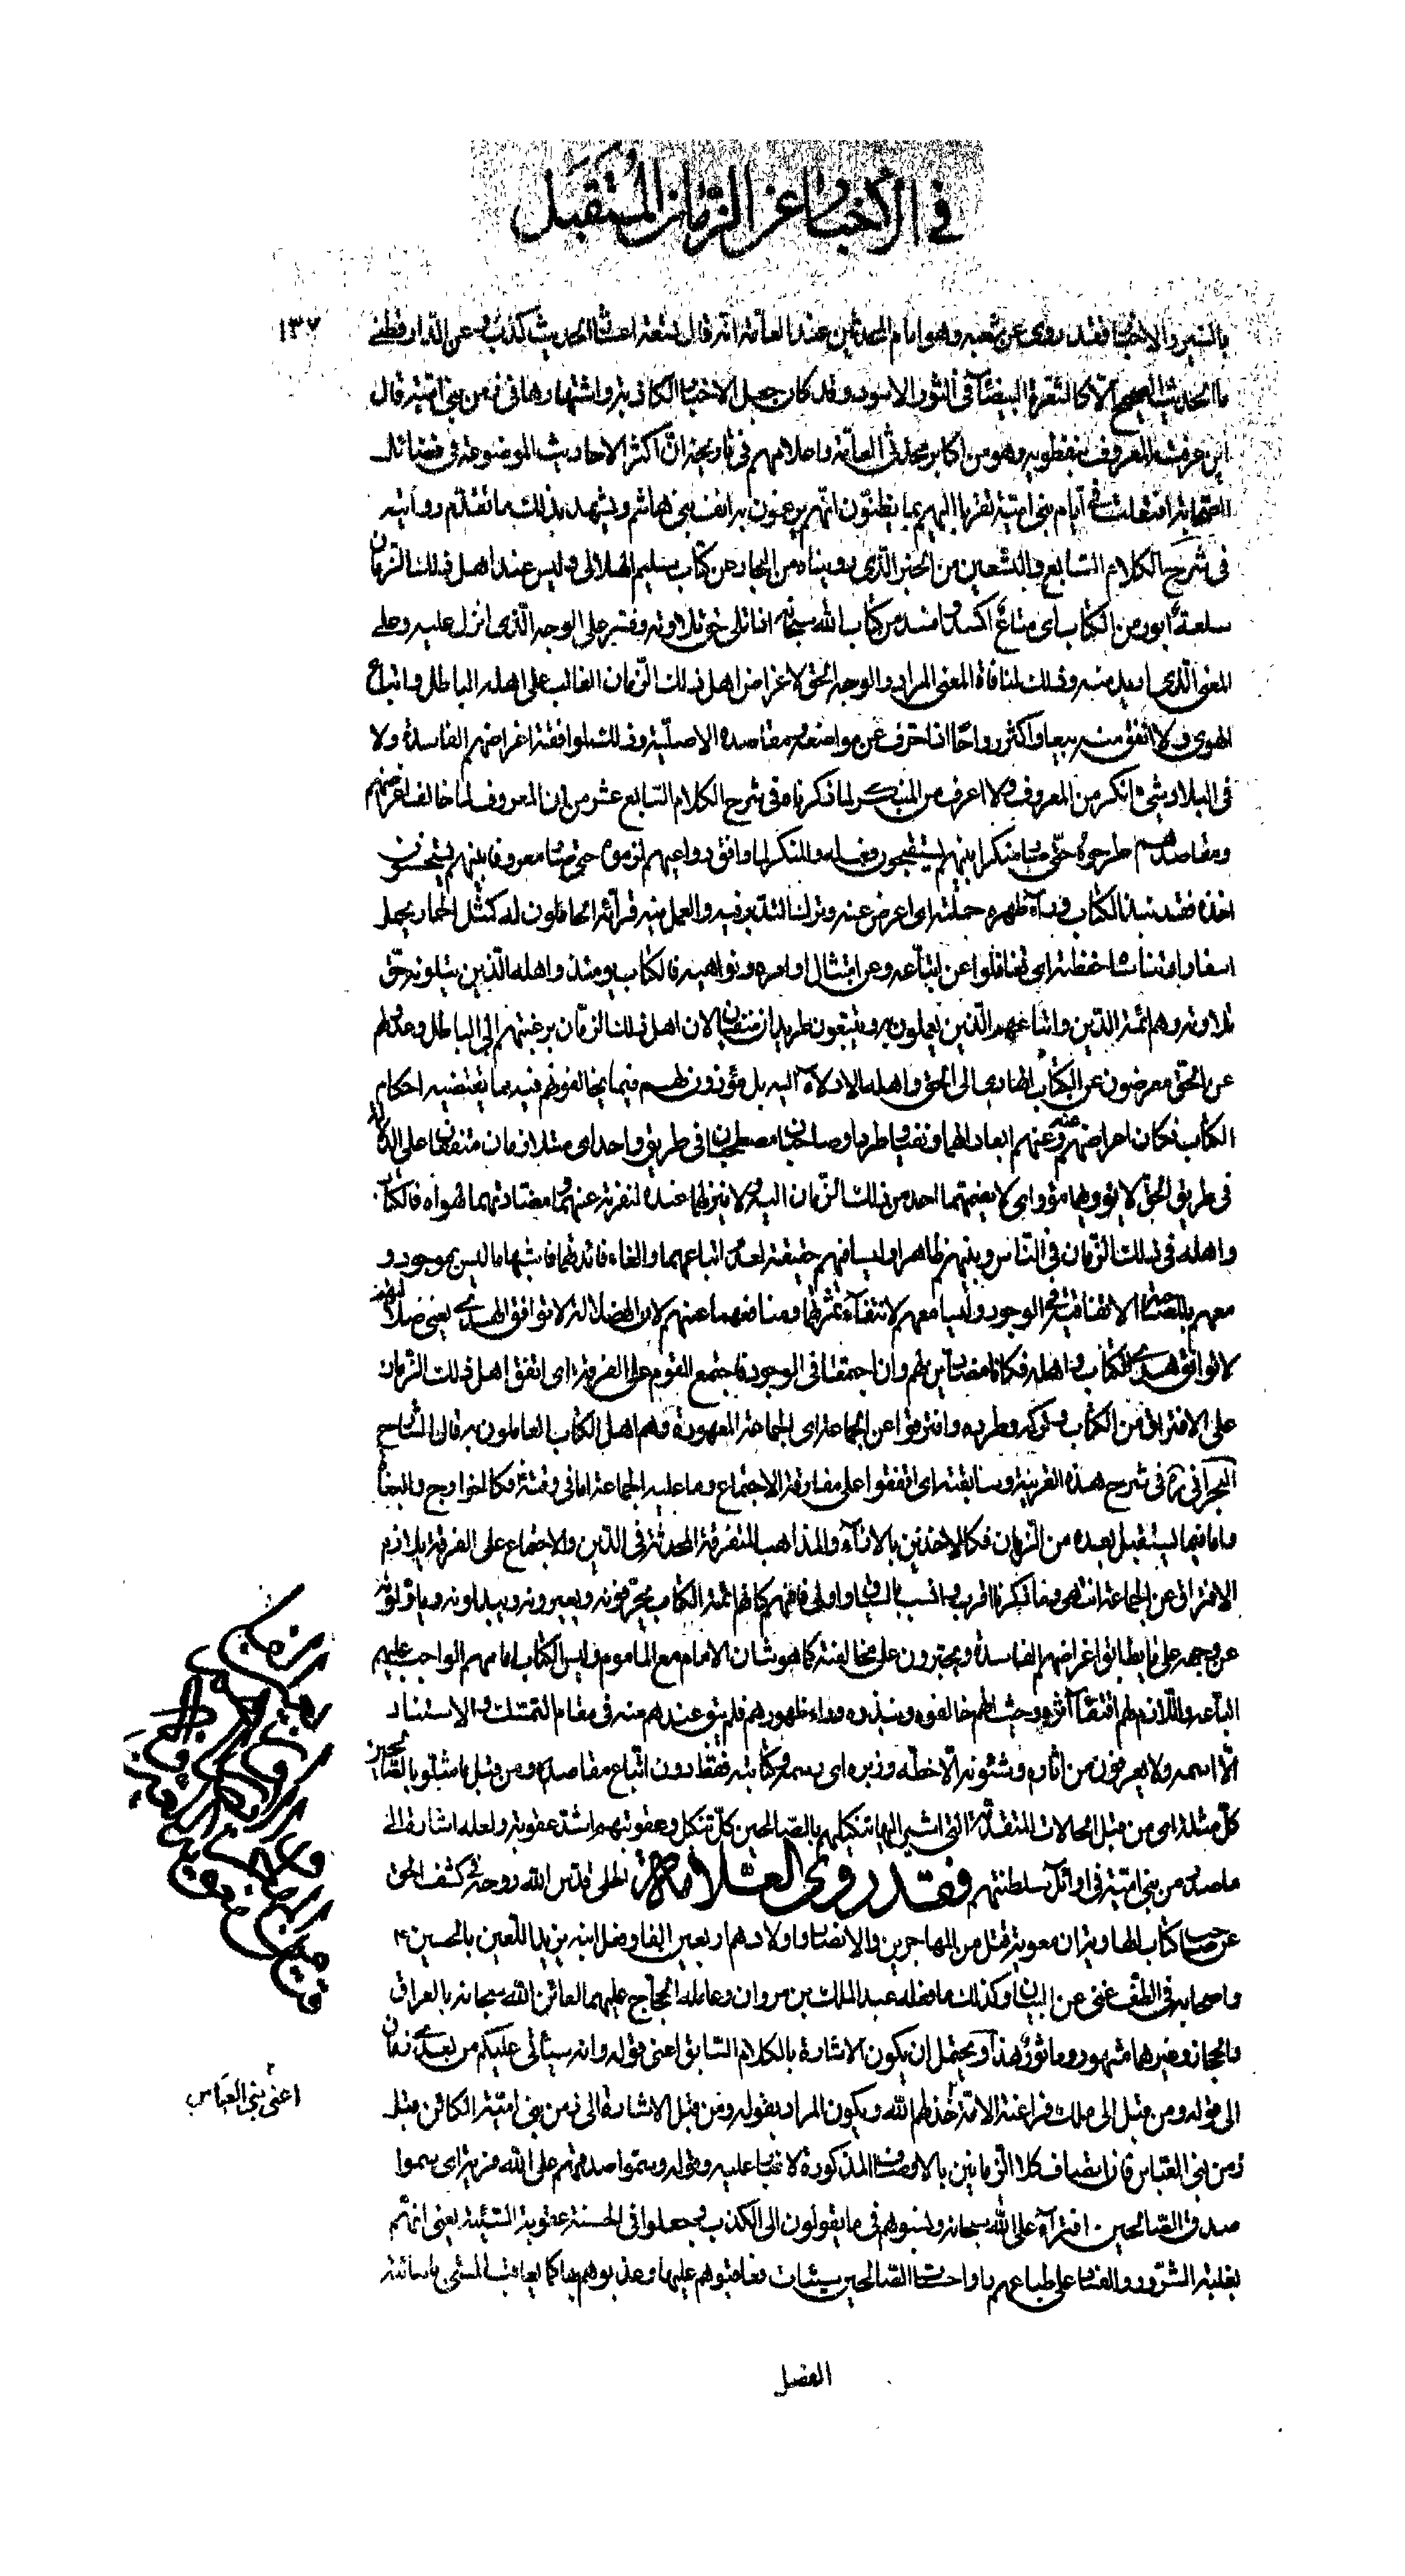 في الأخبار عن الزمان المستقبل
١٣٧
بالسير والاخبار فقد روى عن شعبة وهو امام المحدثين عند العامة انه قال تسعة اعشار الحديث كذب وعن الدارقطني
ما الحديث الصحيح الا كالشعرة البيضاء في الثور الاسود وقد كان جعل الاخبار الكاذبة واشتهارها في زمن بني امية قال
ابن عرفة المعروف بنفطويه وهو من اكابر محدثي العامة واعلامهم في تاريخه ان اكثر الاحاديث الموضوعة في فضائل
الصحابة افتعلت في ايام بني امية تقربا اليهم بما يظنون انهم يرغمون به انف بني هاشم ويشهد بذلك ما تقدم روايته
في شرح الكلام السابع والتسعين من الخبر الذي رويناه من البحار من كتاب سليم الهلالي وليس عند اهل ذلك الزمان
سلعة ابور من الكتاب اي متاع اكسد وافسد من كتاب الله سبحانه اذا تلى حق تلاوته وفسر على الوجه الذي انزل عليه وعلى
المعنى الذي اريد منه وذلك لمنافاة المعنى المراد والوجه الحق لاغراض اهل ذلك الزمان الغالب على اهله الباطل واتباع
الهوى ولا انفق منه بيعا واكثر رواجا اذا حرف عن مواضعه ومقاصده الاصلية وذلك لموافقة اغراضهم الفاسدة ولا
في البلاد شيء انكر من المعروف ولا اعرف من المنكر لما ذكرناه في شرح الكلام السابع عشر من ان المعروف لما خالف اغراضهم
ومقاصدهم طرحوه حتى صار منكرا بينهم يستقبحون فعله والمنكر لما وافق دواعيهم لزموه حتى صار معروفا بينهم يستحسنون
اخذه فقد نبذ الكتاب وراء ظهره حملته اي اعرض عنه وترك التدبر فيه والعمل به قرائه الحاملون له كمثل الحمار يحمل
اسفارا وتناساه حفظته اي تغافلوا عن اتباعه وعن امتثال اوامره ونواهيه فالكتاب يومئذ واهله الذين يتلونه حق
تلاوته وهم ائمة الدين واتباعهم الذين يعملون به ويتبعون طريدان منفيان لان اهل ذلك الزمان برغبتهم الى الباطل وعدولهم
عن الحق معرضون عن الكتاب الهادي الى الحق واهله الادلاء اليه بل مؤذون لهم فيما يخالفونهم فيه مما يقتضيه احكام
الكتاب فكان اعراضهم عنه وعنهم ابعادا لهما ونفيا وطردا وصاحبان مصطحبان في طريق واحد اي متلازمان متفقان على الدلالة
في طريق الحق لا يؤويهما مؤو اي لا يضمهما احد من ذلك الزمان اليه ولا ينزلهما عنده لنفرته عنهما ومضادتهما لهواه فالكتاب
واهله في ذلك الزمان في الناس وبينهم ظاهرا وليسا فيهم حقيقة لعدم اتباعهما والغاء فائدتهما فاشبها ما ليس بموجود و
معهم بالمصاحبة الاتفاقية في الوجود وليسا معهم لانتفاء ثمرتهما ومنافعهما عنهم لان الضلالة لا توافق الهدى يعني ضلالتهم
لا توافق هدى الكتاب واهله فكانا مضادين لهم وان اجتمعا في الوجود فاجتمع القوم على الفرقة اي اتفق اهل ذلك الزمان
على الافتراق من الكتاب وتركه وطرده وافترقوا عن الجماعة اي الجماعة المعهودة وهم اهل الكتاب العاملون به قال الشارح
البحراني ره في شرح هذه القرينة وسابقته اي اتفقوا على مفارقة الاجتماع وما عليه الجماعة اما في وقته فكالخوارج والبغاة
واما فيما يستقبل بعده من الزمان فكالآخذين بالآراء والمذاهب المتفرقة المحدثة في الدين والاجتماع على الفرقة يلازم
الافتراق عن الجماعة انتهى وما ذكرناه اقرب وانسب بالسياق واولى فانهم كانهم ائمة الكتاب يحرفونه ويغيرونه ويبدلونه ويأولونه
عن وجهه على ما يطابق اغراضهم الفاسدة ويجترون على مخالفته كما هو شان الامام مع الماموم وليس الكتاب امامهم الواجب عليهم
اتباعه واللازم لهم اقتفاء اثره وحيث انهم خالفوه ونبذوه وراء ظهورهم فلم يبق عندهم منه في مقام التمسك والاستناد
الا اسمه ولا يعرفون من اثاره وشئونه الا خطه وزبره اي رسمه وكتابته فقط دون اتباع مقاصده ومن قبل ما مثلوا بالصالحين
كل مثلة اي من قبل الحالات المتقدمة التي اشير اليها تنكيلهم بالصالحين كل تنكيل وعقوبتهم اشد عقوبة ولعله اشارة الى
ما صدر من بني امية في اوائل سلطنتهم فقد روى العلامة الحلي قدس الله روحه في كشف الحق
عن صاحب كتاب الهاوية ان معوية قتل من المهاجرين والانصار واولادهم اربعين الفا وفعل ابنه يزيد اللعين بالحسين ع
واصحابه في الطف غني عن البيان وكذلك ما فعله عبد الملك بن مروان وعامله الحجاج عليهما لعائن الله سبحانه بالعراق
والحجاز وغيرهما مشهور وماثور هذا ويحتمل ان يكون الاشارة بالكلام السابق اعني قوله وانه سيأتي عليكم من بعدي زمان
الى قوله ومن قبل الى ملك فراعنة الامة خذلهم الله ويكون المراد بقوله ومن قبل الاشارة الى زمن بني امية الكائن قبل
زمن بني العباس فان اتصاف كلا الزمانين بالاوصاف المذكورة لا غبار عليه وقوله وسموا صدقهم على الله فرية اي سموا
صدق الصالحين افتراء على الله سبحانه ونسبوهم في ما يقولون الى الكذب وجعلوا في الحسنة عقوبة السيئة يعني انهم
لغلبة الشرور والفساد على طباعهم راوا حسنات الصالحين سيئات فعاقبوهم عليها وعذبوهم بها كما يعاقب المسيء باسائته
اعني بني العباس
الفصل